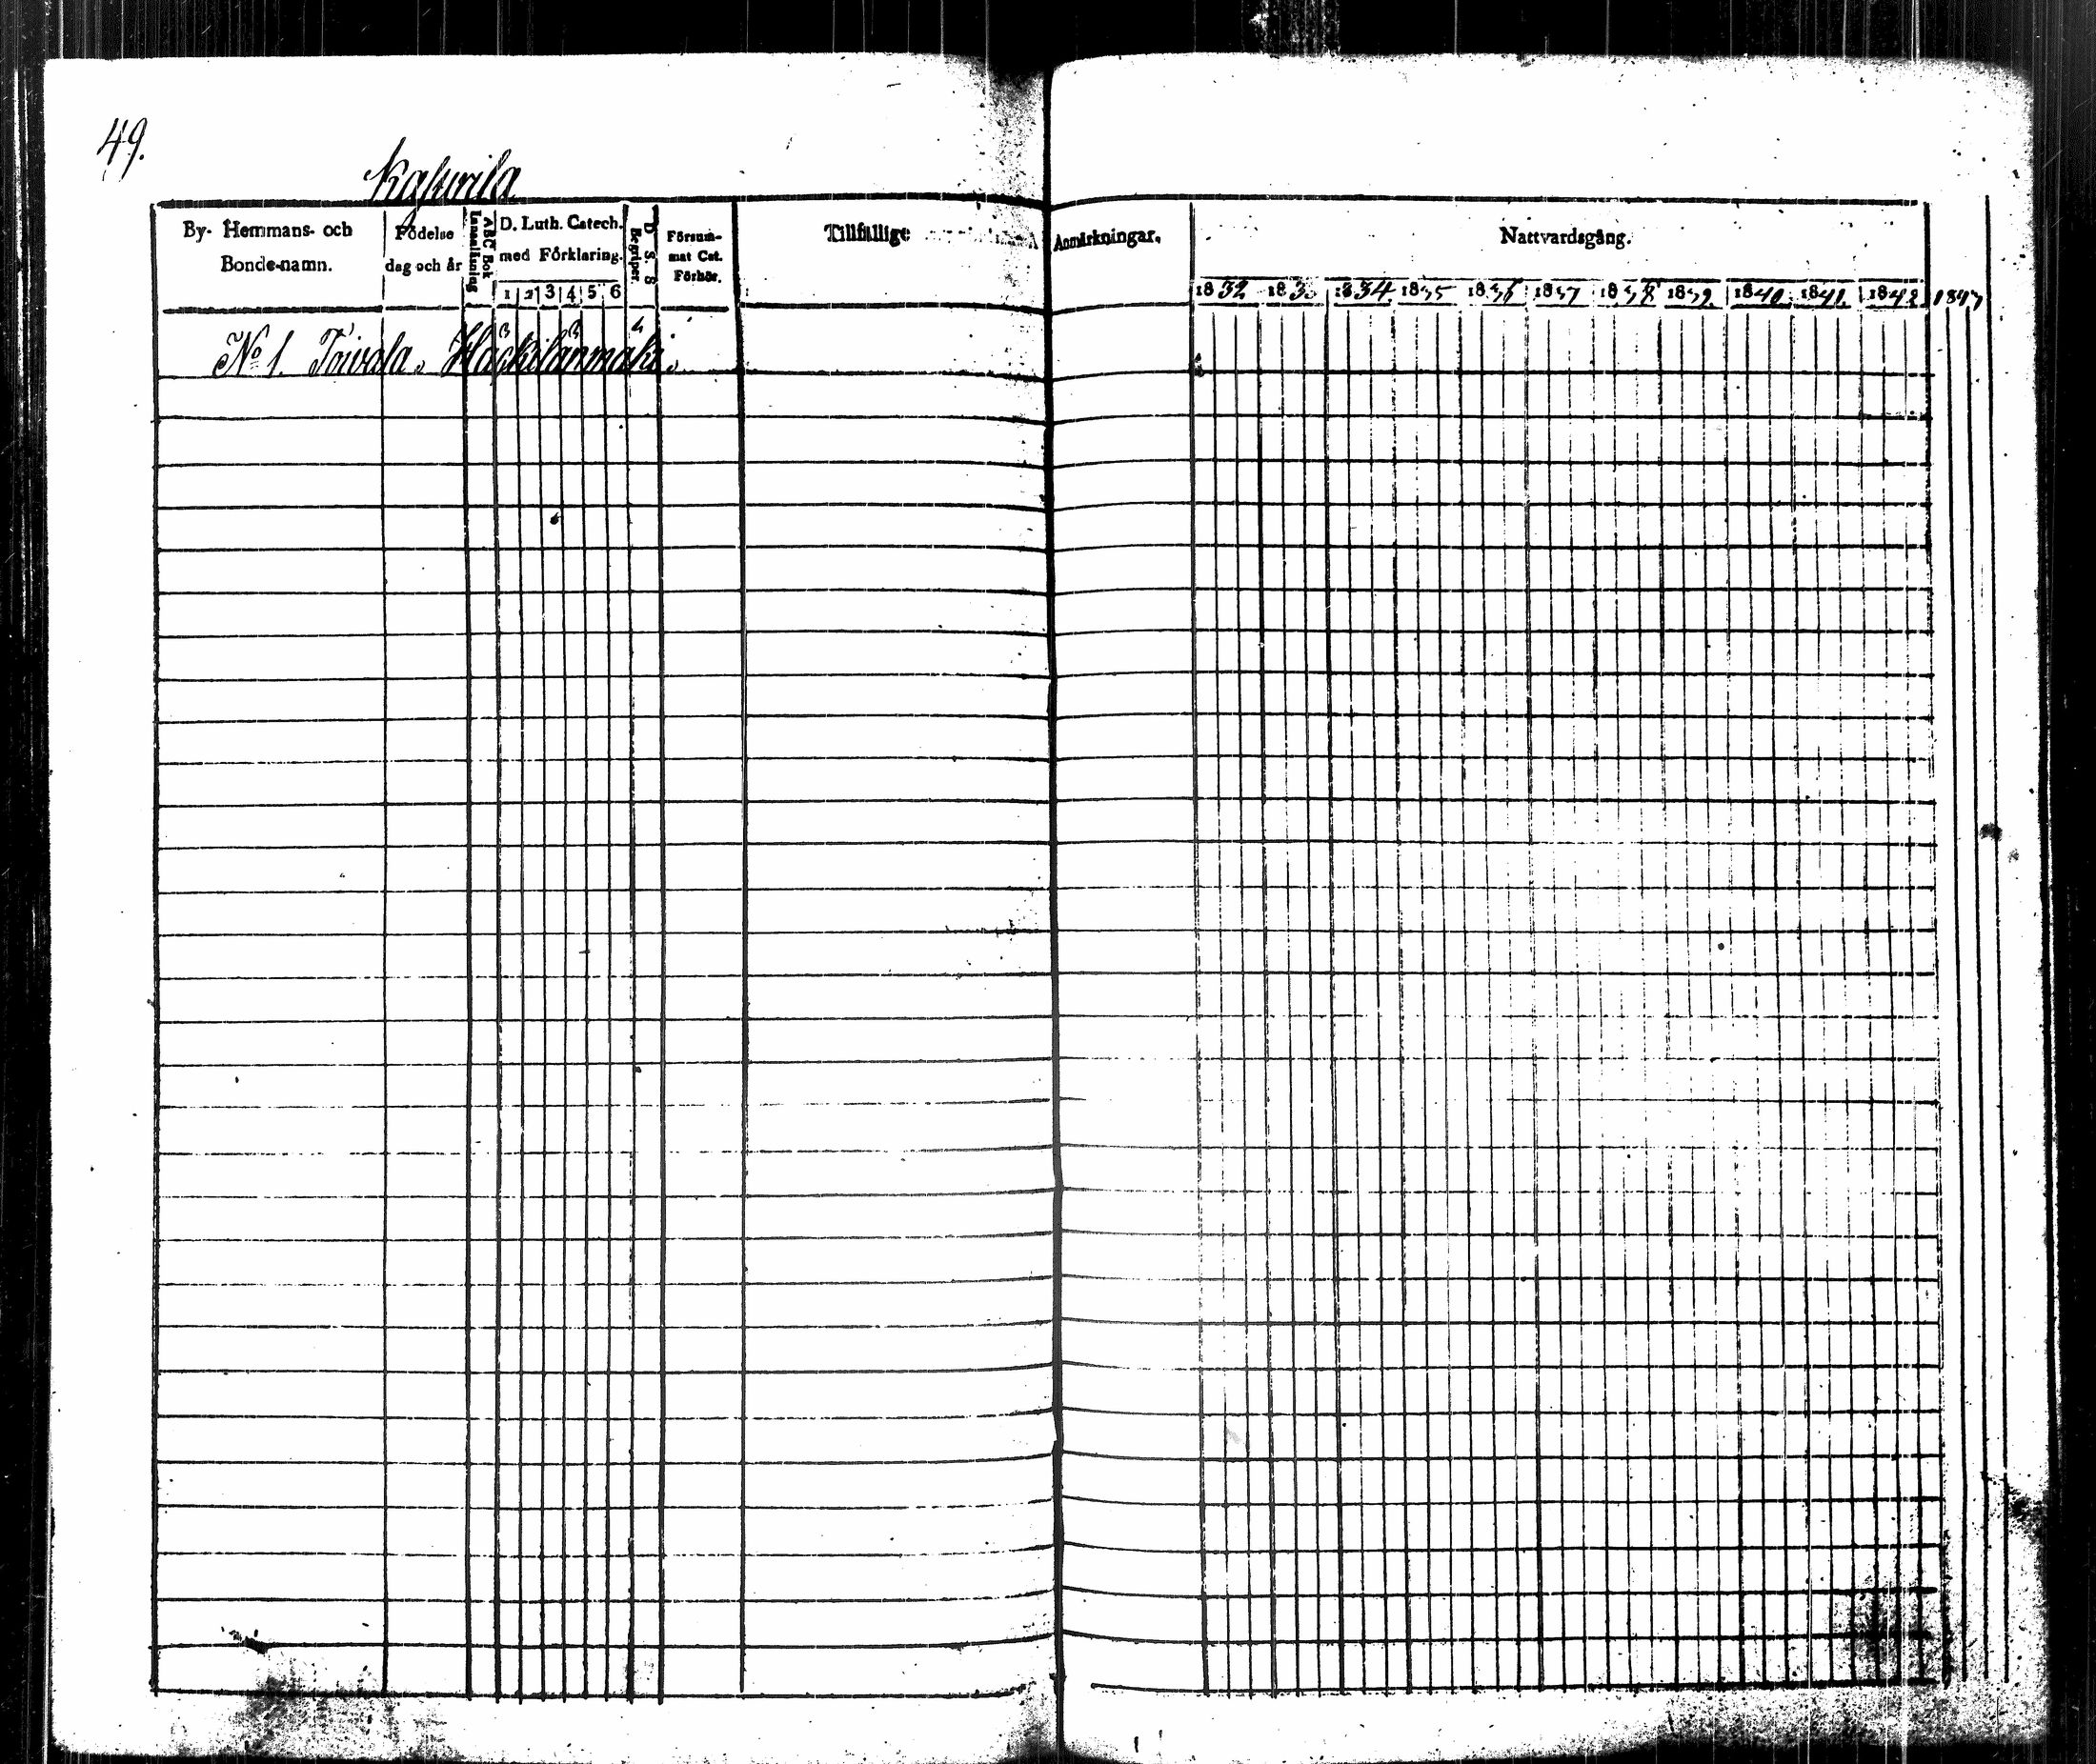 49.
Kasurila
By- Hemmans- och
Bonde-namn.
Födelse
dag och år
ABC Bok
Innanläsning
D. Luth. Catech.
med Förklaring.
1 2 3 4 5 6
D. S. B
Begriper.
Försum-
mat Cat.
Förhör.
Tillfällige
Anmärkningar.
Nattvardsgång.
1832 183 1834 1835 1836 1837 1838 1839 1840 1841 1842 1843
No 1. Toivala. Häckilänmäki.